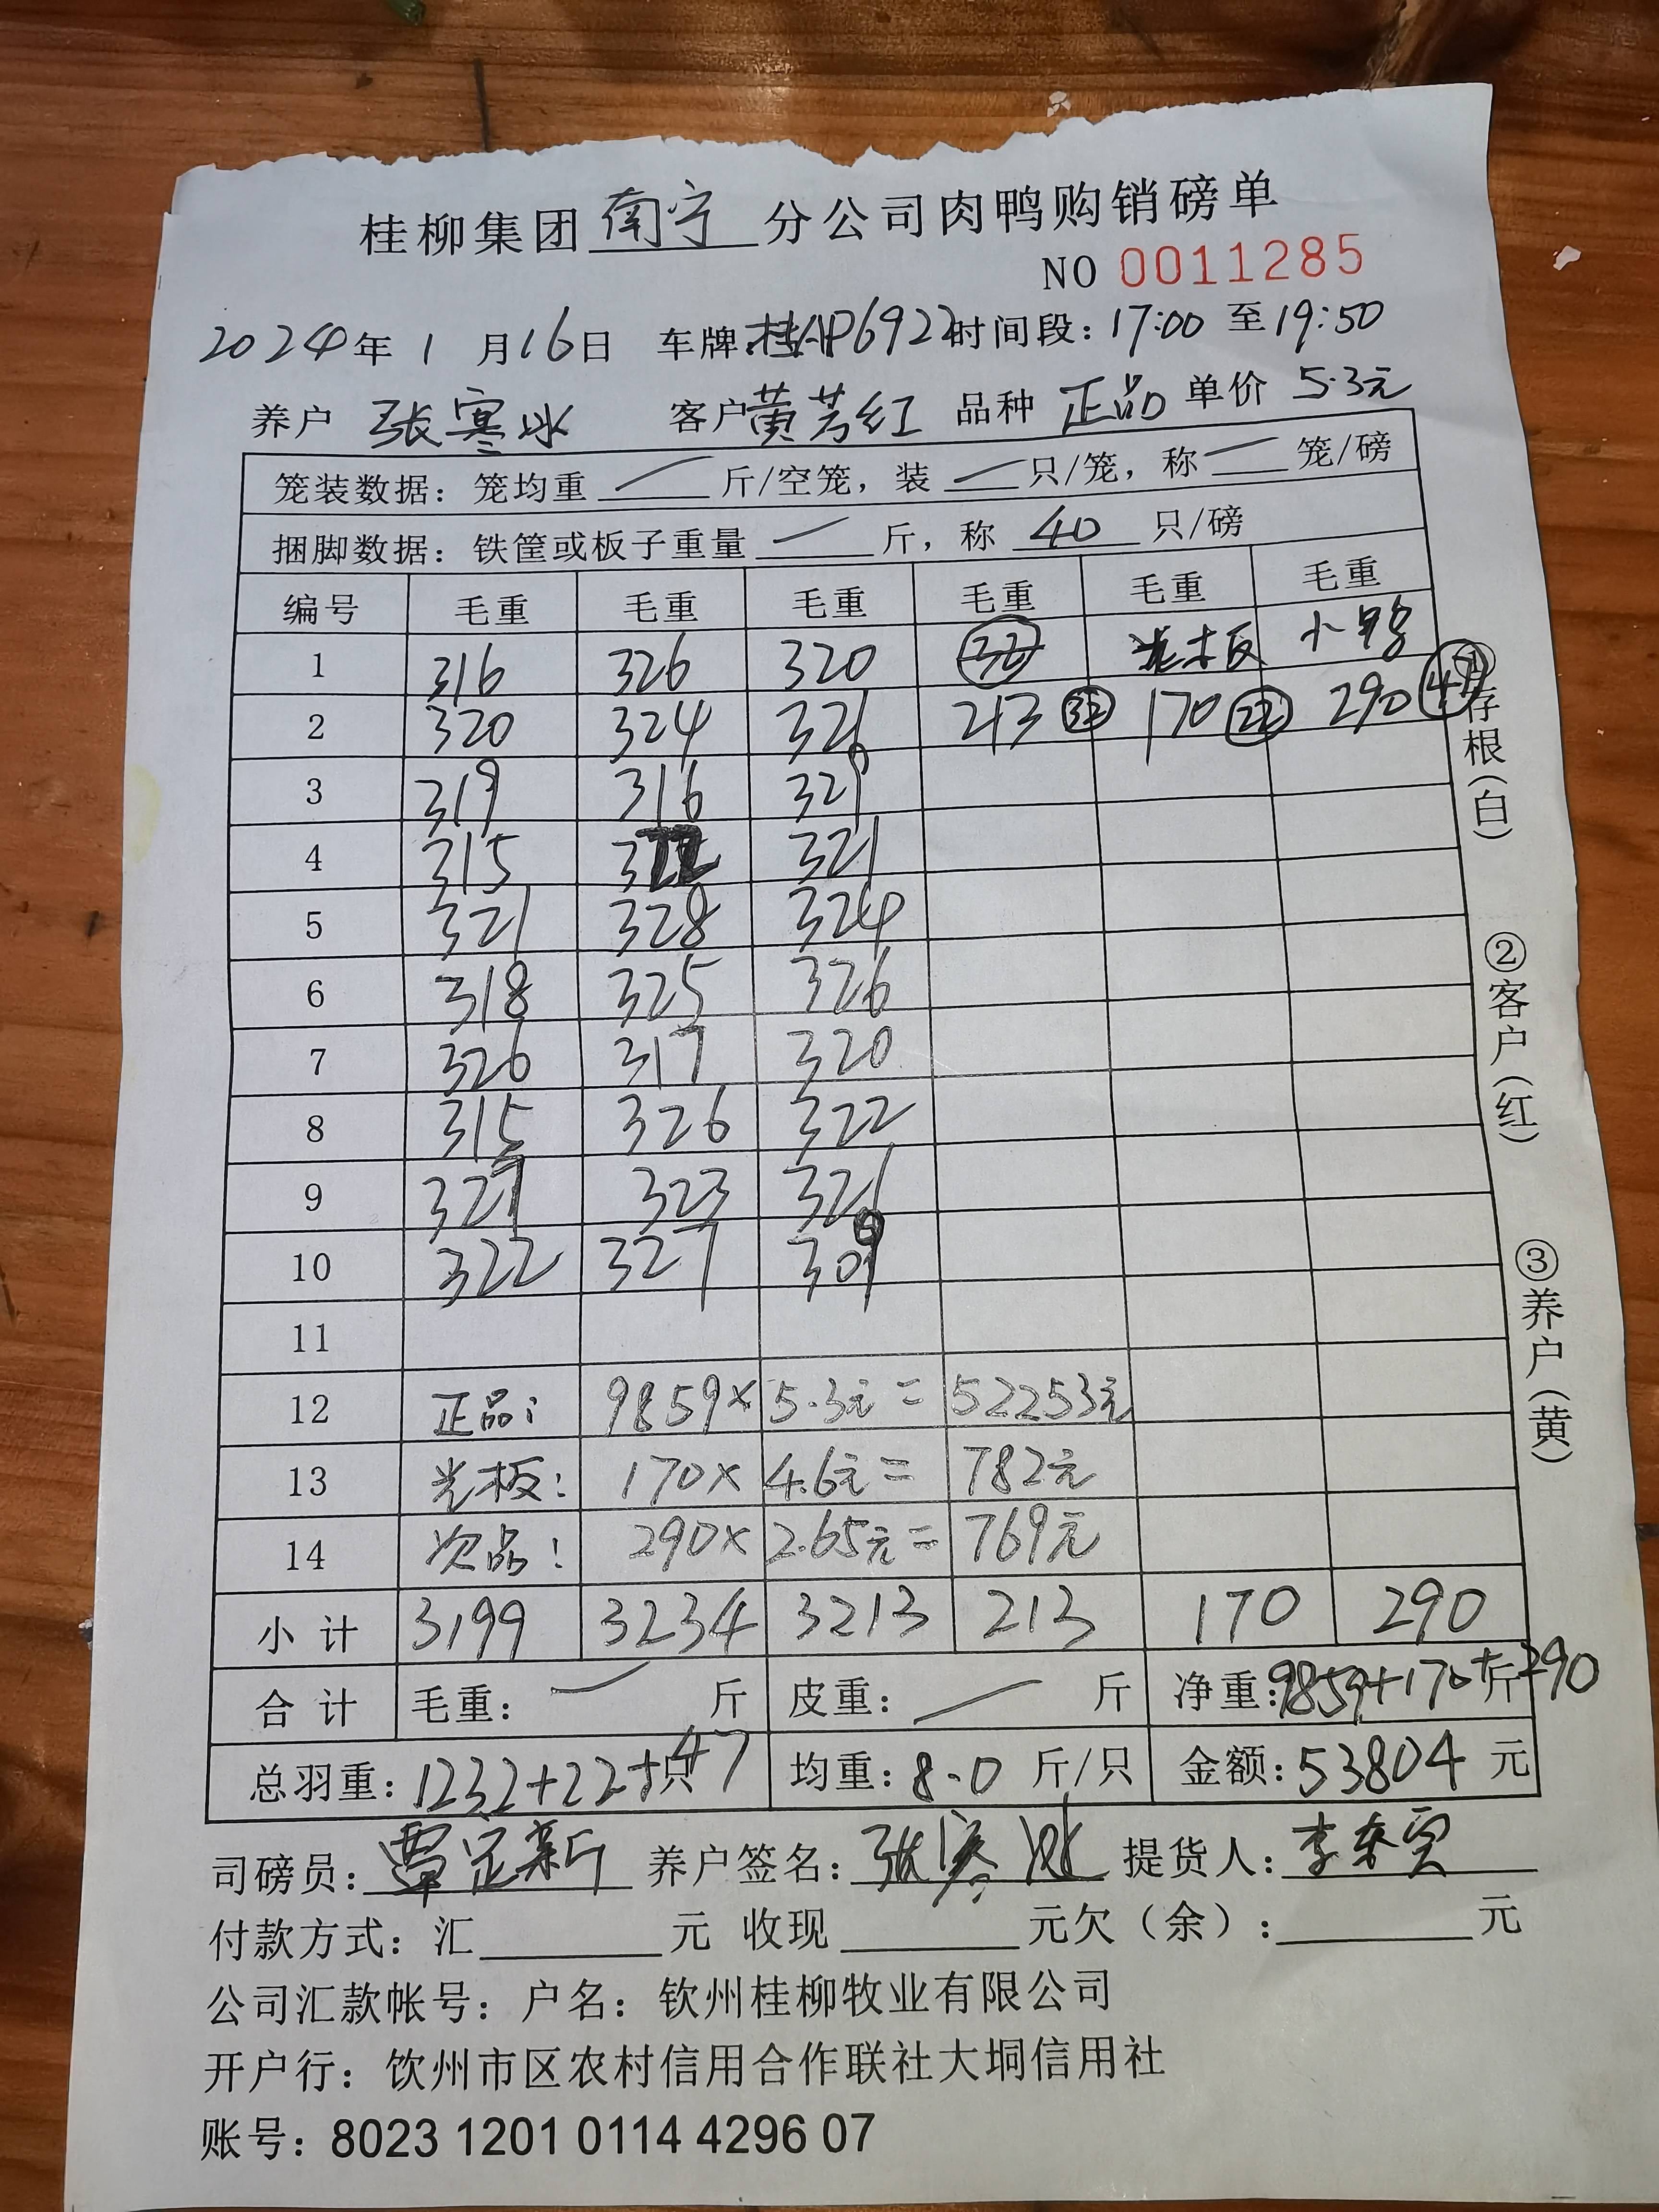 桂柳集团南宁分公司肉鸭购销磅单
NO 0011285
2024年1月16日 车牌:桂AP6922 时间段:17:00至19:50
养户 张寒冰 客户 黄芳红 品种 正品 单价 5.3元
笼装数据:笼均重 — 斤/空笼,装 — 只/笼,称 — 笼/磅
捆脚数据:铁筐或板子重量 — 斤,称 40 只/磅
编号 毛重 毛重 毛重 毛重 毛重 毛重
1 316 326 320 光板 小鸭
2 320 324 321 213 32 170 22 290 47
3 319 316 329
4 315 322 321
5 321 328 324
6 318 325 326
7 326 317 320
8 315 326 322
9 327 323 321
10 322 327 309
11
12 正品: 9859× 5.3元= 52253元
13 光板: 170× 4.6元= 782元
14 次品: 290× 2.65元= 769元
小计 3199 3234 3213 213 170 290
合计 毛重: — 斤 皮重: — 斤 净重:9859+170+290斤
总羽重:1232+22+47只 均重:8.0斤/只 金额:53804元
司磅员:覃定新 养户签名:张寒冰 提货人:李
付款方式:汇 元 收现 元欠(余): 元
公司汇款帐号:户名:钦州桂柳牧业有限公司
开户行:饮州市区农村信用合作联社大垌信用社
账号:8023 1201 0114 4296 07
①存根(白)
②客户(红)
③养户(黄)